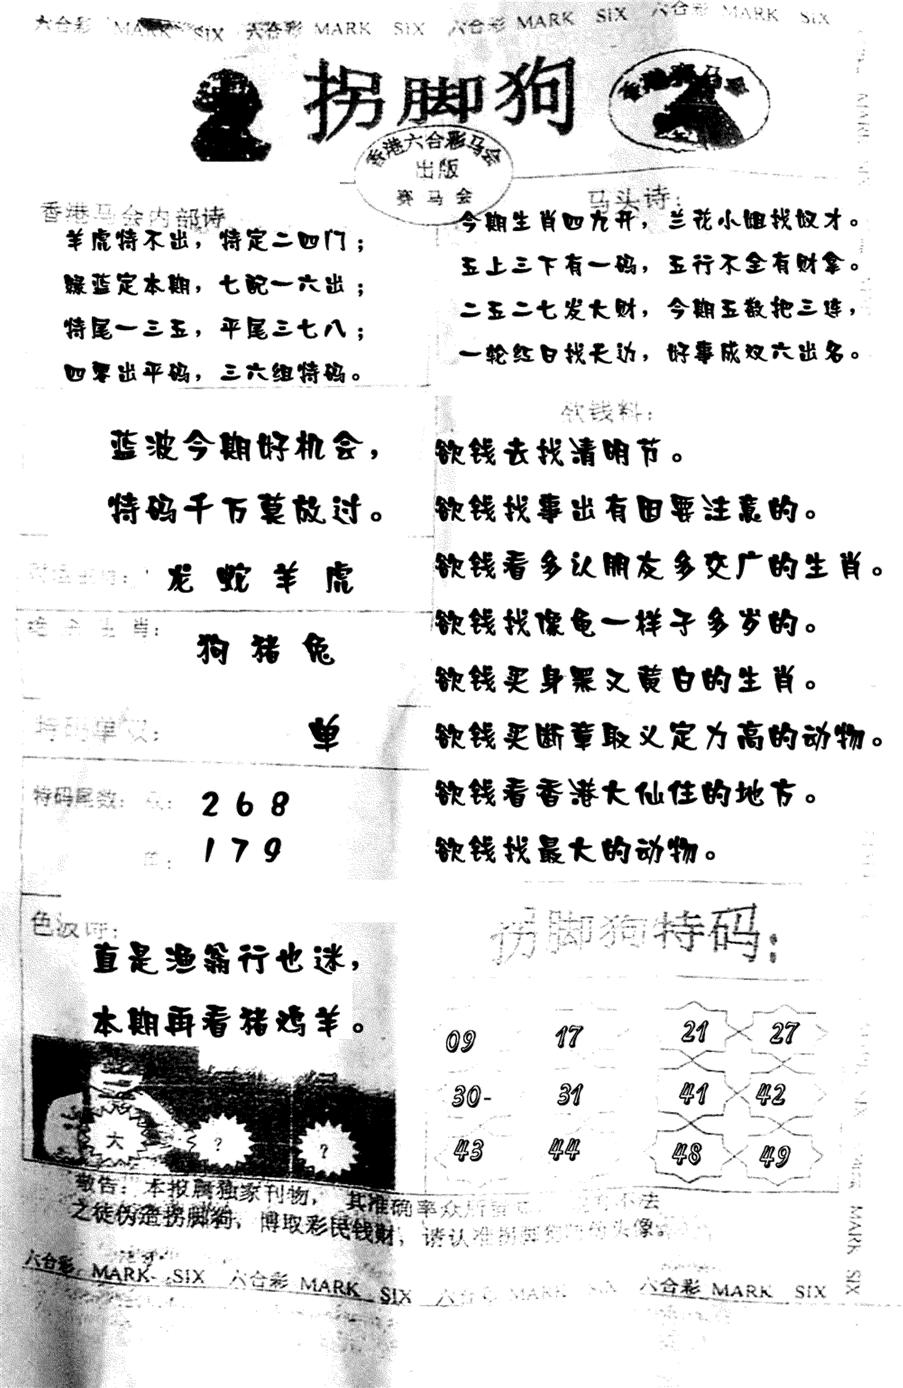 六合彩 MARK SIX 六合彩 MARK SIX 六合彩 MARK SIX 六合彩 MARK SIX
拐脚狗
香港赛马会
香港六合彩马会
出版
赛马会
香港马会内部诗
羊虎特不出，特定二四门；
绿蓝定本期，七配一六出；
特尾一三五，平尾三七八；
四零出平码，三六组特码。
马头诗：
今期生肖四九开，兰花小姐找奴才。
五上三下有一码，五行不全有财拿。
二五二七发大财，今期五数把三连，
一轮红日找天边，好事成双六出名。
蓝波今期好机会，
特码千万莫放过。
龙 蛇 羊 虎
生肖：
狗 猪 兔
特码单双：
单
特码尾数：
2 6 8
1 7 9
欲钱料：
欲钱去找清明节。
欲钱找事出有因要注意的。
欲钱看多认朋友多交广的生肖。
欲钱找像龟一样子多岁的。
欲钱买身黑又黄白的生肖。
欲钱买断章取义定力高的动物。
欲钱看香港大仙住的地方。
欲钱找最大的动物。
色波诗：
直是渔翁行也迷，
本期再看猪鸡羊。
大 ? ?
拐脚狗特码：
09 17 21 27
30- 31 41 42
43 44 48 49
敬告：本报属独家刊物，其准确率众所 不法
之徒伪造拐脚狗，博取彩民钱财，请认准拐脚狗 头像。
六合彩 MARK SIX 六合彩 MARK SIX 六合彩 MARK SIX 六合彩 MARK SIX
MARK SIX